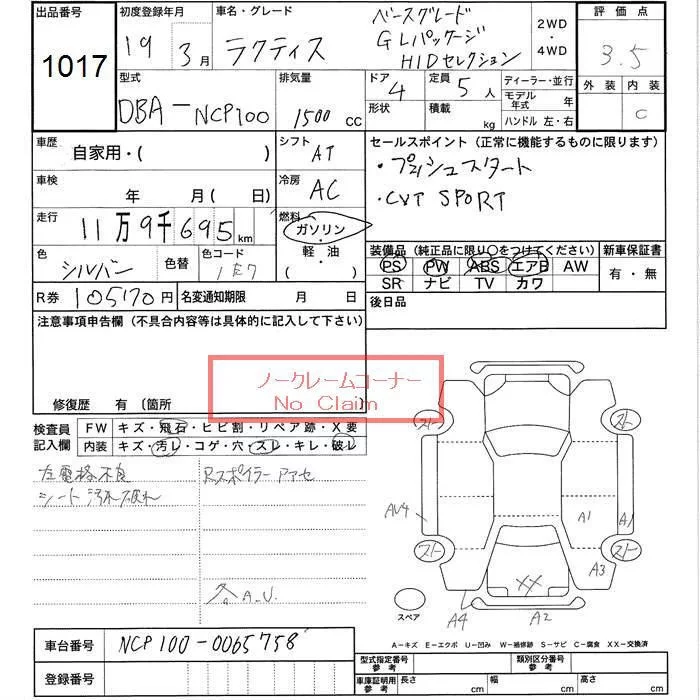 出品番号 1017
初度登録年月 19 3月
車名・グレード ラクティス
ベースグレード
GLパッケージ
HIDセレクション
2WD
・
4WD
評価点 3.5
外装 内装 C
型式 DBA-NCP100
排気量 1500cc
ドア 4
形状
定員 5人
積載 kg
ディーラー・並行
モデル年式 年
ハンドル 左・右
車歴 自家用・( )
シフト AT
セールスポイント(正常に機能するものに限ります)
・プッシュスタート
・CVT SPORT
車検 年 月( 日)
冷房 AC
走行 11万9千695km
燃料 ガソリン
・
軽・油
( )
色 シルバー 色替 色コード 1E7
装備品(純正品に限り○をつけてください)
PS PW ABS エアB AW
SR ナビ TV カワ
新車保証書
有・無
R券 105170円 名変通知期限 月 日
後日品
注意事項申告欄(不具合内容等は具体的に記入して下さい)
ノークレームコーナー
No Claim
修復歴 有〔箇所
検査員記入欄
FW キズ・飛石・ヒビ割・リペア跡・X要
内装 キズ・汚レ・コゲ・穴・スレ・キレ・破レ
左電格不良 Rスポイラーアアセ
シート汚れ破れ
各A.U.
スト スト
AU4 A1 A1
スト スト
A3
XX
A4 A2
スペア
A-キズ E-エクボ U-凹み W-補修跡 S-サビ C-腐食 XX-交換済
車台番号 NCP100-0065758
登録番号
型式指定番号 参考 類別区分番号 参考
車庫証明用 参考 長さ cm 幅 cm 高さ cm